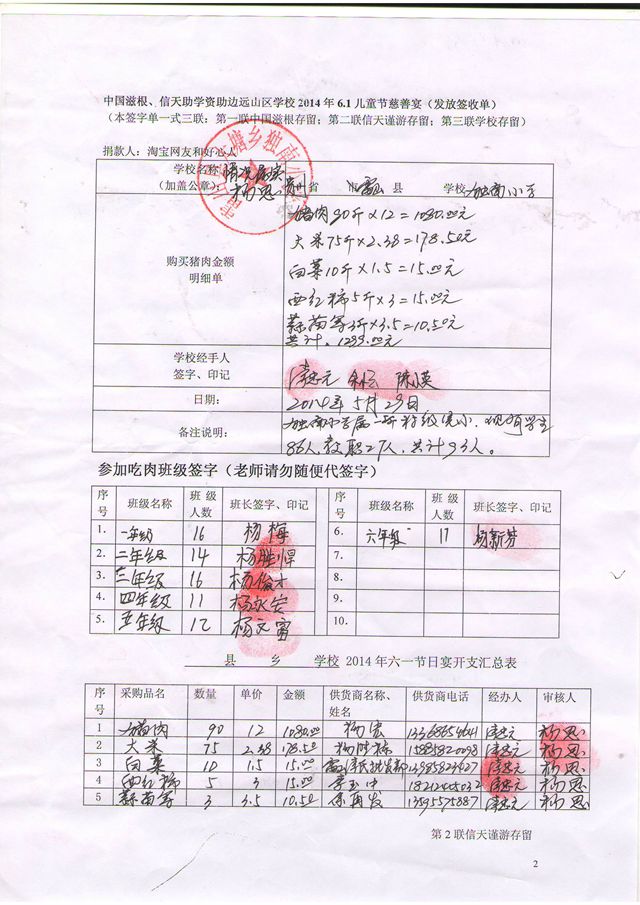 中国滋根、信天助学资助边远山区学校 2014 年 6.1 儿童节慈善宴（发放签收单）
（本签字单一式三联：第一联中国滋根存留；第二联信天谨游存留；第三联学校存留）
捐款人：淘宝网友和好心人
学校名称（加盖公章） 情况属实 杨恩 贵州省 市 县 学校 独南小学
购买猪肉金额明细单
猪肉90斤×12=1080.00元
大米75斤×2.38=178.50元
白菜10斤×1.5=15.00元
西红柿5斤×3=15.00元
蒜苗等3斤×3.5=10.50元
共计：1299.00元
学校经手人签字、印记
日期： 2014年5月29日
备注说明： 独南小学属一所 级完小，现有学生
86人，教职工7人，共计93人。
参加吃肉班级签字（老师请勿随便代签字）
序号 班级名称 班级人数 班长签字、印记 序号 班级名称 班级人数 班长签字、印记
1. 一年级 16 杨梅 6. 六年级 17 杨新芬
2. 二年级 14 杨胜悍 7.
3. 三年级 16 杨俊才 8.
4. 四年级 11 杨永安 9.
5. 五年级 12 杨文富 10.
县 乡 学校 2014 年六一节日宴开支汇总表
序号 采购品名 数量 单价 金额 供货商名称、姓名 供货商电话 经办人 审核人
1 猪肉 90 12 1080.00 杨宏 杨恩
2 大米 75 2.38 178.50 15885820098 杨恩
3 白菜 10 1.5 15.00 杨恩
4 西红柿 5 3 15.00 杨恩
5 蒜苗等 3 3.5 10.50 13595575887 杨恩
第 2 联信天谨游存留
2